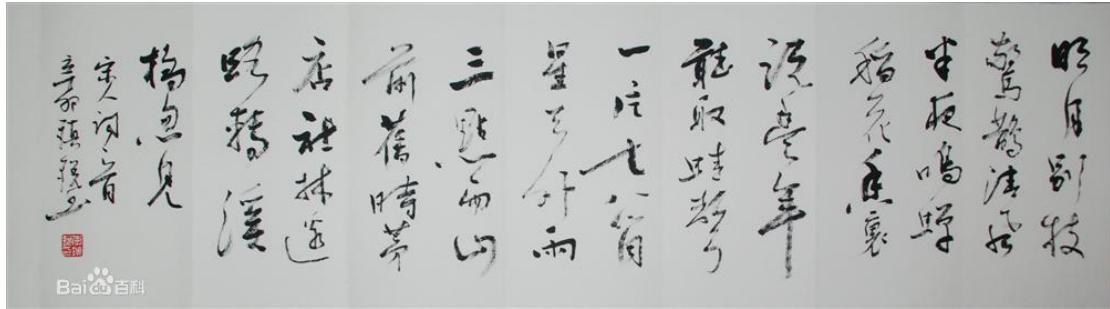 明月別枝
驚鵲清風
半夜鳴蟬
稻花香裏
說豐年
聽取蛙聲
一片七八箇
星天外兩
三點雨山
前舊時茅
店社林邊
路轉溪
橋忽見
宋人詞一首
辛卯 書
Bai du 百科